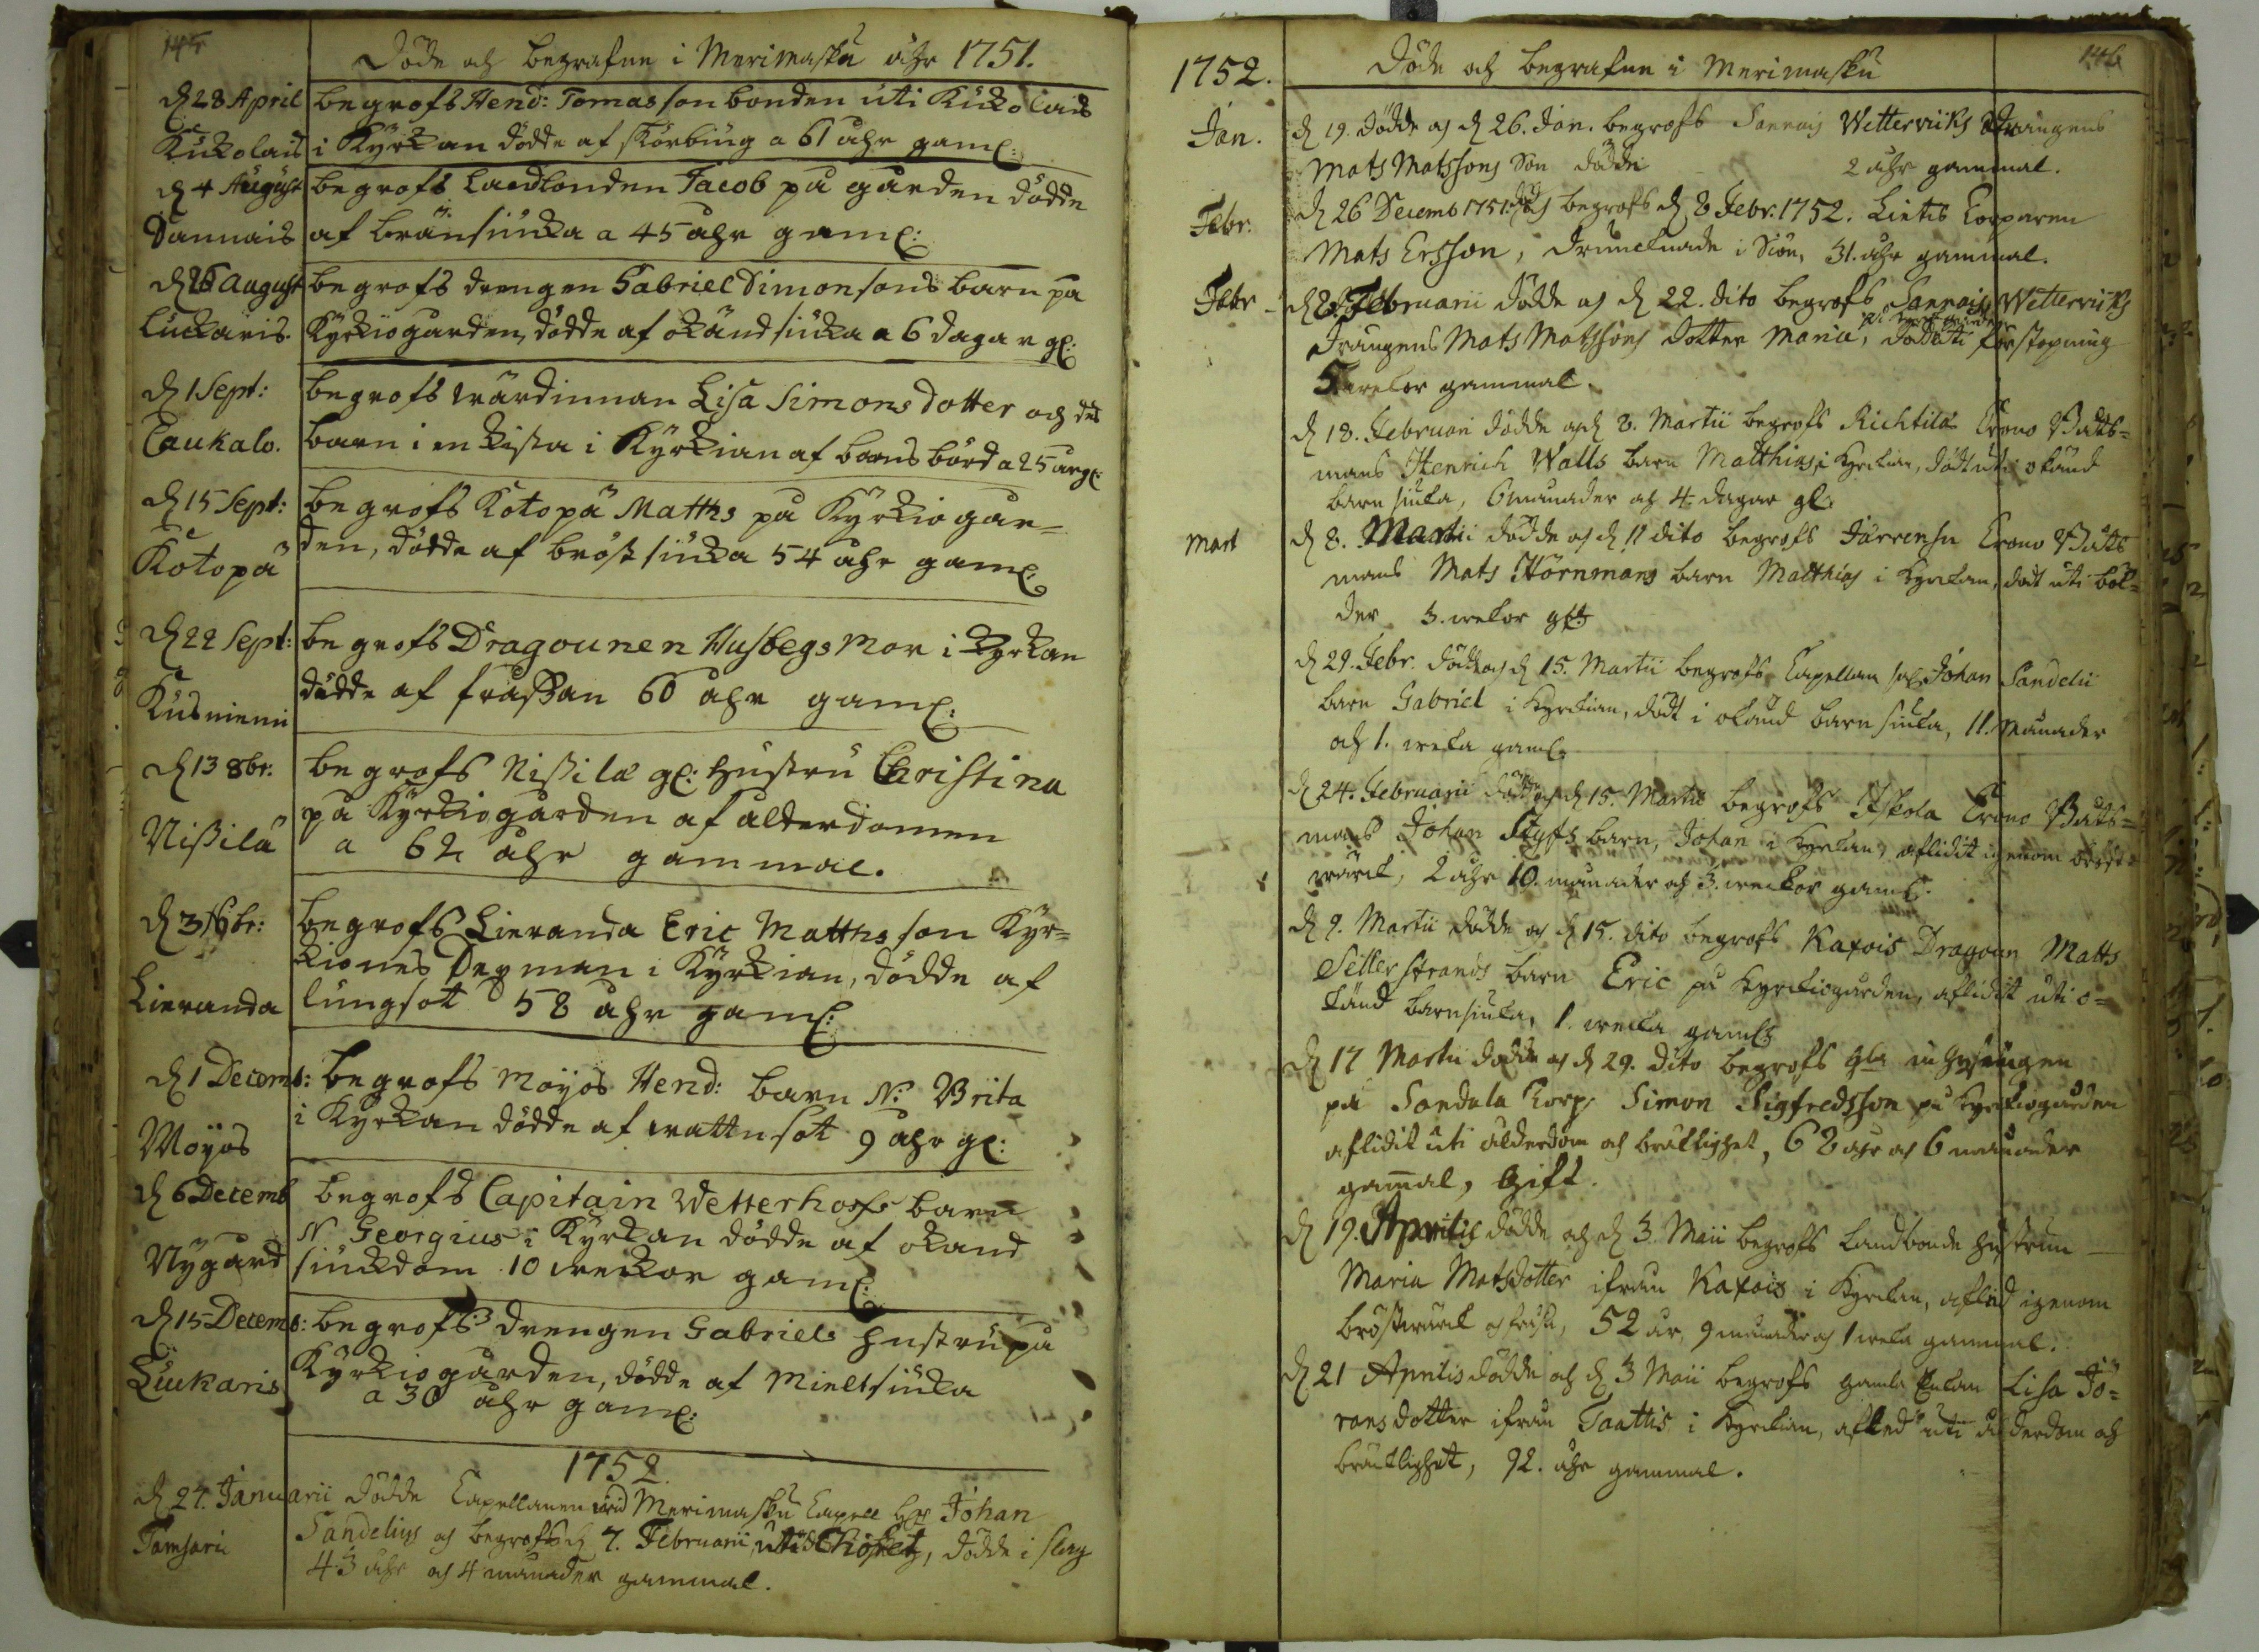 145
Döde och begrafne i Merimasku åhr 1751.
d 28 April begrofs Hend: Tomasson bonden uti Kuckolais
Kuckolais i Kyrkan dödde af skörbiug a 61 åhr gaml:
d 4 August begrofs Landbonden Jacob på gården dödde
Sannais af bränsiucka a 45 åhr gaml:
d 26 August begrofs drengen Gabriel Simonsons barn på
Luckaris. Kyrkiogården, dödde af okänd siucka a 6 dagar gl:
d 1 Sept: begrofs wärdinnan Lisa Simons dotter och des
Laukalo. barn i en kista i Kyrkian af barns börd a 25 år gl:
d 15 Sept: begrofs Kotopä Matths på Kyrkiogår=
Kotopä den, dödde af bröst siucka 54 åhr gaml:
d 22 Sept: begrofs Dragounen Husbegs Mor i Kyrkan
Kusniemi dödde af frassan 60 åhr gaml:
d 13 8br. begrofs Nissilæ gl: hustru Christina
Nissilä på Kyrkiogården af ålderdomen
a 62 åhr gammal.
d 3 9br: begrofs Lieranda Eric Matthsson Kyr=
Lieranda kiones Degman i Kyrkian, dödde af
lungsot 58 åhr gaml:
d 1 Decemb: begrofs Moijos Hend: barn N: Brita
Moijos i Kyrkan dödde af wattu sot 9 åhr gl:
d 6 Decemb begrofs Capitain Wetterhofs barn
N Georgius i Kyrkan dödde af okand
Nygård siuckdom 10 weckor gaml:
d 15 Decemb: begrofs drengen Gabriels hustru på
Luckaris Kyrkiogården, dödde af Mieltsiucka
a 30 åhr gaml:
1752.
d 24. Januarii dödde Capellanen wid Merimasku Capell Johan
Tamsari Sandelius och begrofs d 7. Februarii uti Choret, dödde i slag
43 åhr och 4 månader gammal.
146
1752. Döde och begrafne i Merimasku
Jan. d 19. dödde och d 26. Jan. begrofs Sannais Wetterviks Drängens
Mats Matssons Son dödde 2 åhr gammal.
Febr. d 26 Decemb 1751. och begrofs d 8 Febr: 1752. Lietis Torparen
Mats Ersson, drunknade i Siön, 31. åhr gammal.
Febr d 8. Februarii dödde och d 22. dito begrofs Sannais Wetterviks
Drängens Mats Matssons dotter Maria, förstopning
5. wekor gammal.
d 18. Februari dödde och d 8. Martii begrofs Richtilä Crono Båts=
mans Henrich Walls barn Matthias i Kyrckian, dödt uti okänd
barn siuka, 6 månader och 4 dagar gl.
Mart d 8. Martii dödde och d 11 dito begrofs Järrensu Crono Båts
mans Mats Hörnmans barn Matthias i Kyrckan, död uti böl=
der 3. wekor gl
d 29. Febr. dödde och d 15. Martii begrofs Capellan sal Johan Sandelii
barn Gabriel i Kyrckian, dödt i okänd barn siuka, 11. Månader
och 1. weka gaml.
d 24. Februarii dödde och d 15. Martii begrofs Iskola Crono Båts=
mans Johan Styfs barn, Johan i Kyrckan, aflidit igenom bröst
wärck, 2 åhr 10. månader och 3. weckor gaml.
d 9. Martii dödde och d 15. dito begrofs Kaxois Dragoun Matts
Sellerstrands barn Eric på Kyrckiogården, aflidit uti o=
känd barnsiuka, 1. wecka gaml
d 17 Martii dödde och d 29. dito begrofs gla inhysingen
på Sandala Torp Simon Sigfredsson på Kyrckiogården
aflidit uti ålderdom och bräcklighet, 68 åhr och 6 månader
gammal, Gift.
d 19. Aprilis dödde och d 3. Maii begrofs Landbonde hustrun
Maria Matsdotter ifrån Kaxois i Kyrckan, afled igenom
bröstwärck och frässa, 52 år, 9 månader och 1 weka gammal.
d 21 Aprilis dödde och d 3 Maii begrofs gamla Enkan Lisa Jö=
ransdotter ifrån Taattis i Kyrckian, afled uti ålderdom och
bräcklighet, 92. åhr gammal.